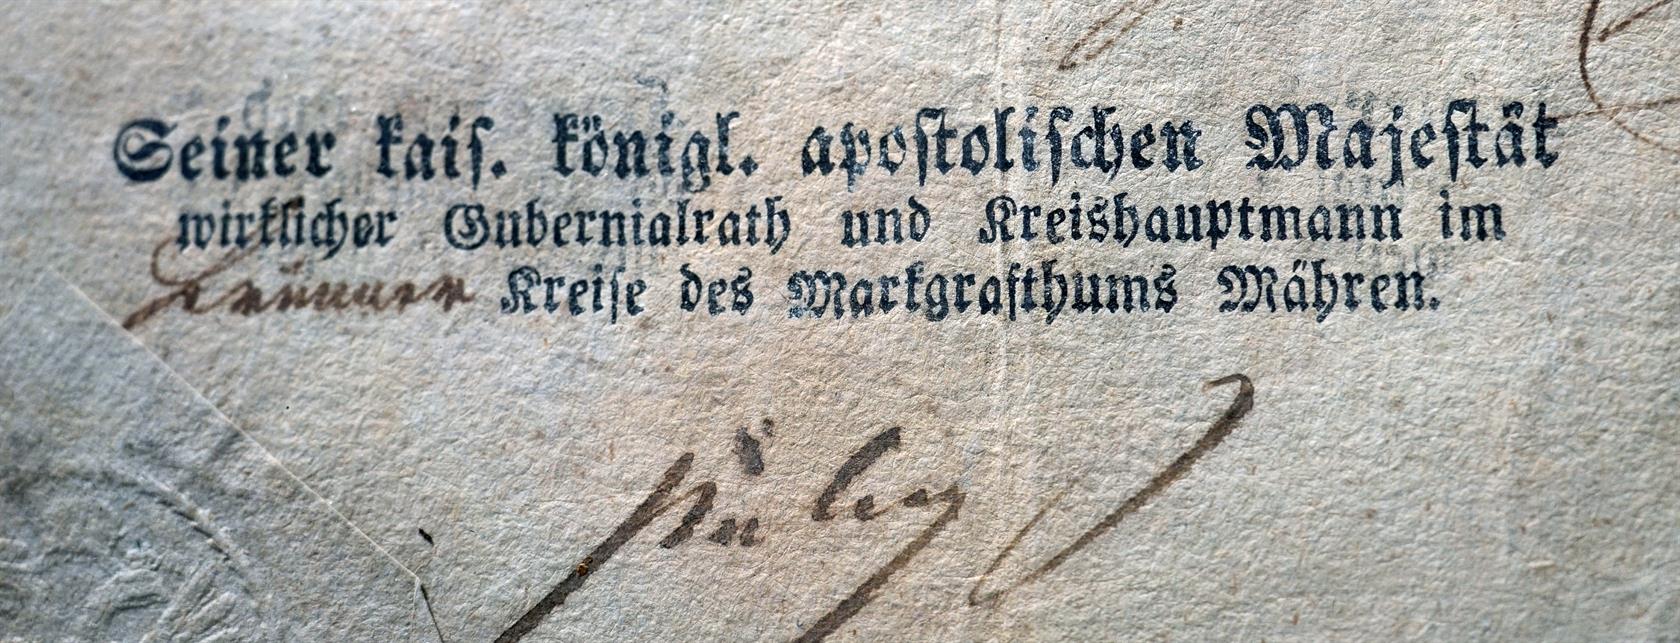 Seiner kais. königl. apostolischen Majestät
wirklicher Gubernialrath und Kreishauptmann im
Kreise des Markgrafthums Mähren.